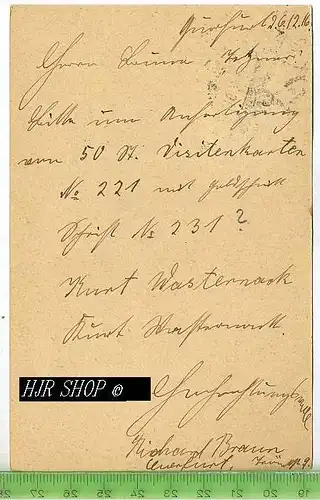 Querfurt 26.12.16.
Herrn Bruno
Bitte um Anfertigung
von 50 St. Visitenkarten
No 221 mit Goldschnitt
Schrift No 231?
Kurt Wasternack
Kurt Wasternack.
HJR SHOP ©
Hochachtungsvoll
Richard Braun
Querfurt,
28 27 26 25 24 23 22 21 20 19 18